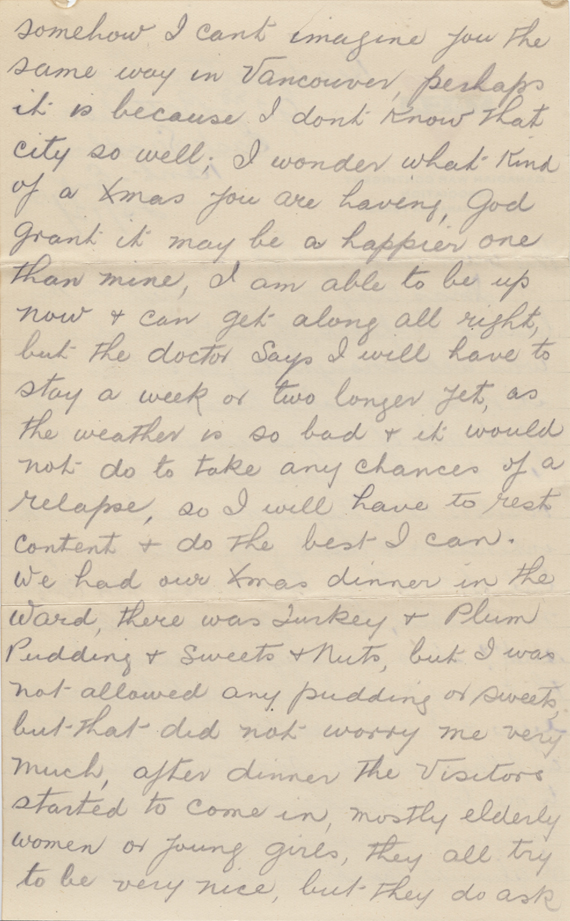 somehow I cant imagine you the
same way in Vancouver, perhaps
it is because I dont know that
city so well; I wonder what kind
of a Xmas you are having, God
grant it may be a happier one
than mine, I am able to be up
now & can get along all right,
but the doctor says I will have to
stay a week or two longer yet, as
the weather is so bad & it would
not do to take any chances of a
relapse, so I will have to rest
content & do the best I can.
We had our Xmas dinner in the
Ward, there was Turkey & Plum
Pudding & Sweets & Nuts, but I was
not allowed any pudding or sweets
but that did not worry me very
much, after dinner the Visitors
started to come in, mostly elderly
women or young girls, they all try
to be very nice, but they do ask